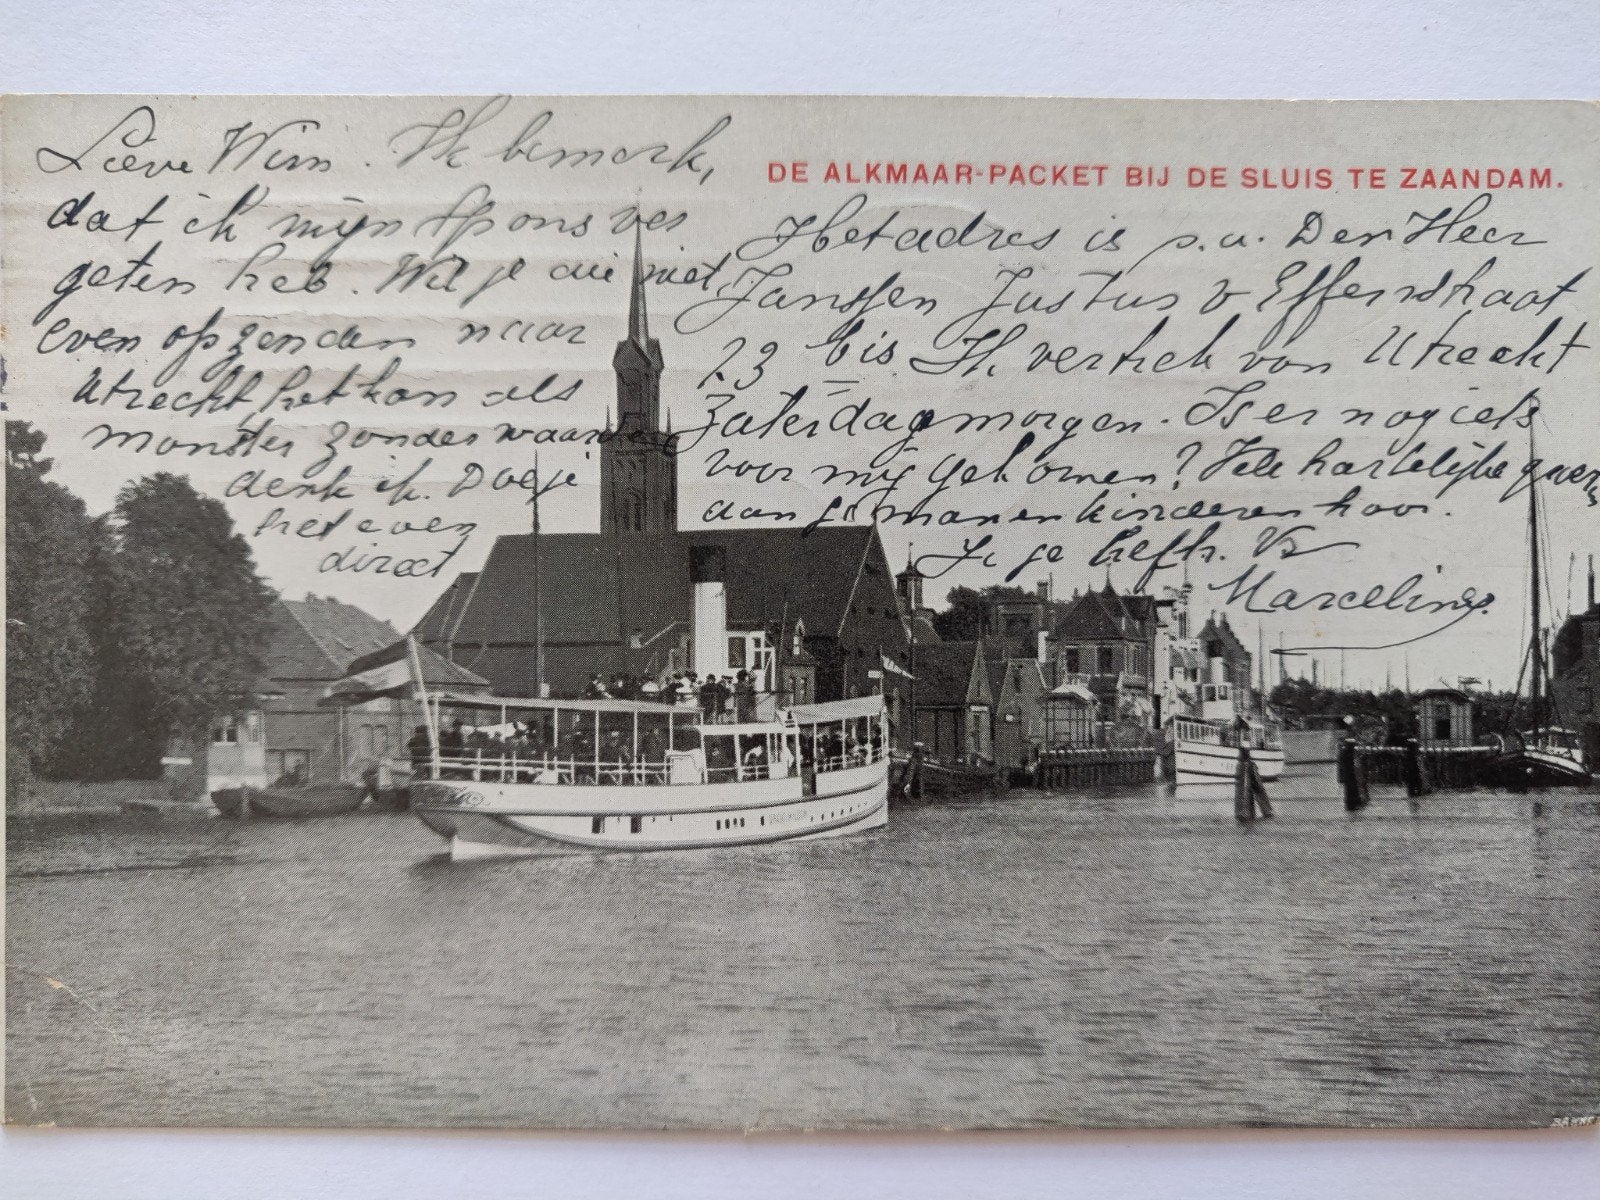 DE ALKMAAR-PACKET BIJ DE SLUIS TE ZAANDAM.
Lieve Wim. Ik bemerk,
dat ik mijn spons ver
geten heb. Wil je die niet
even opzenden naar
Utrecht, het kan als
monster zonder waarde
denk ik. Doe je
het even
direct
Het adres is p.a. Den Heer
Janssen Justus v Effenstraat
23 bis. Ik vertrek van Utrecht
Zaterdagmorgen. Is er nog iets
voor mij gekomen? Vele hartelijke groeten
aan je man en kinderen hoor.
Je je liefh. Vr
Marceline.